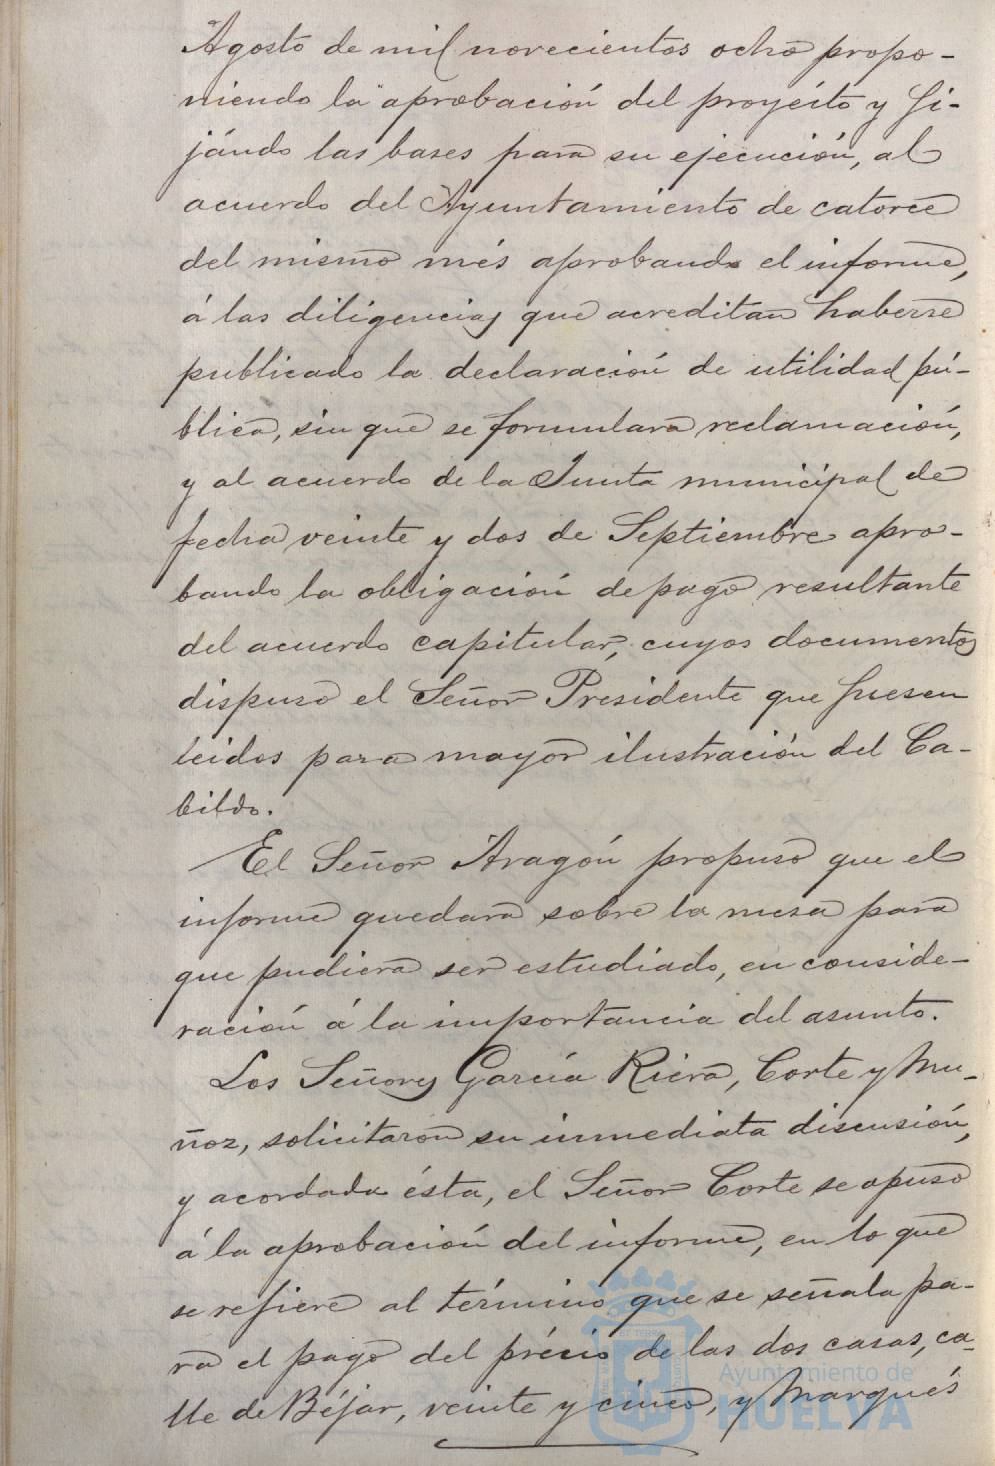 Agosto de mil novecientos ocho propo-
niendo la aprobación del proyécto y fi-
jándo las bases para su ejecución, al
acuerdo del Ayuntamiento de catorce
del mismo més aprobando el informe,
á las diligencias que acreditan haberse
publicado la declaración de utilidad pú-
blica, sin que se formulara reclamación,
y al acuerdo de la Junta municipal de
fecha veinte y dos de Septiembre apro-
bando la obligación de pago resultante
del acuerdo capitular, cuyos documentos
dispuso el Señor Presidente que fuesen
leidos para mayor ilustración del Ca-
bildo.
El Señor Aragón propuso que el
informe quedara sobre la mesa para
que pudiera ser estudiado, en conside-
ración á la importancia del asunto.
Los Señores García Riera, Corte y Mu-
ñoz, solicitaron su inmediata discusión,
y acordada ésta, el Señor Corte se opuso
á la aprobación del informe, en lo que
se refiere al término que se señala pa-
ra el pago del précio de las dos casas, ca-
lle de Béjar, veinte y cinco, y Marqués
Ayuntamiento de
HUELVA